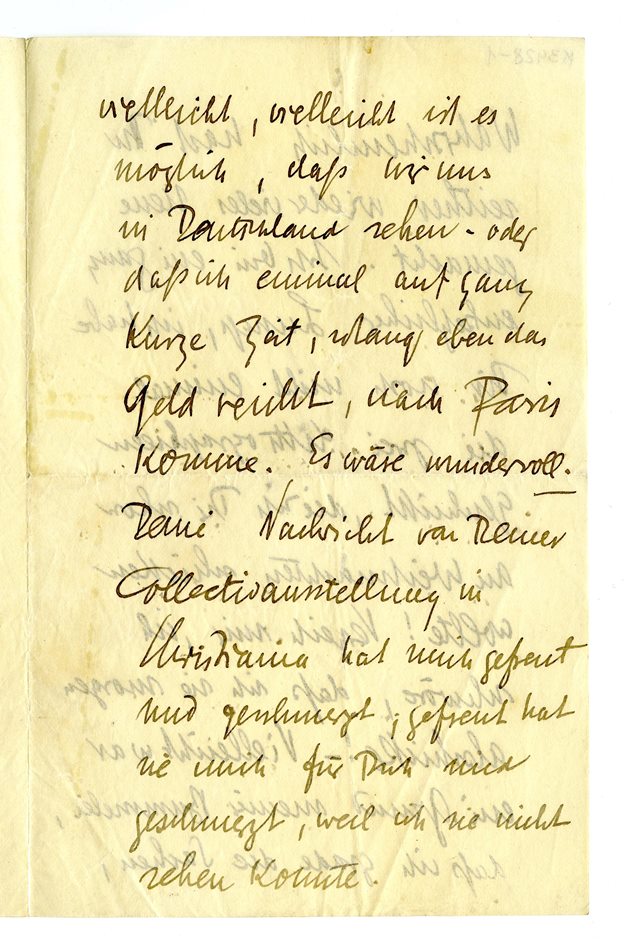 K3428-1
vielleicht, vielleicht ist es
möglich, daß wir uns
in Deutschland sehen - oder
daß ich einmal auf ganz
Kurze Zeit, solang eben das
Geld reicht, nach Paris
Komme. Es wäre wundervoll.
Deine Nachricht von Deiner
Collectivausstellung in
Christiania hat mich gefreut
und geschmerzt, gefreut hat
sie mich für Dich und
geschmerzt, weil ich sie nicht
sehen Konnte.